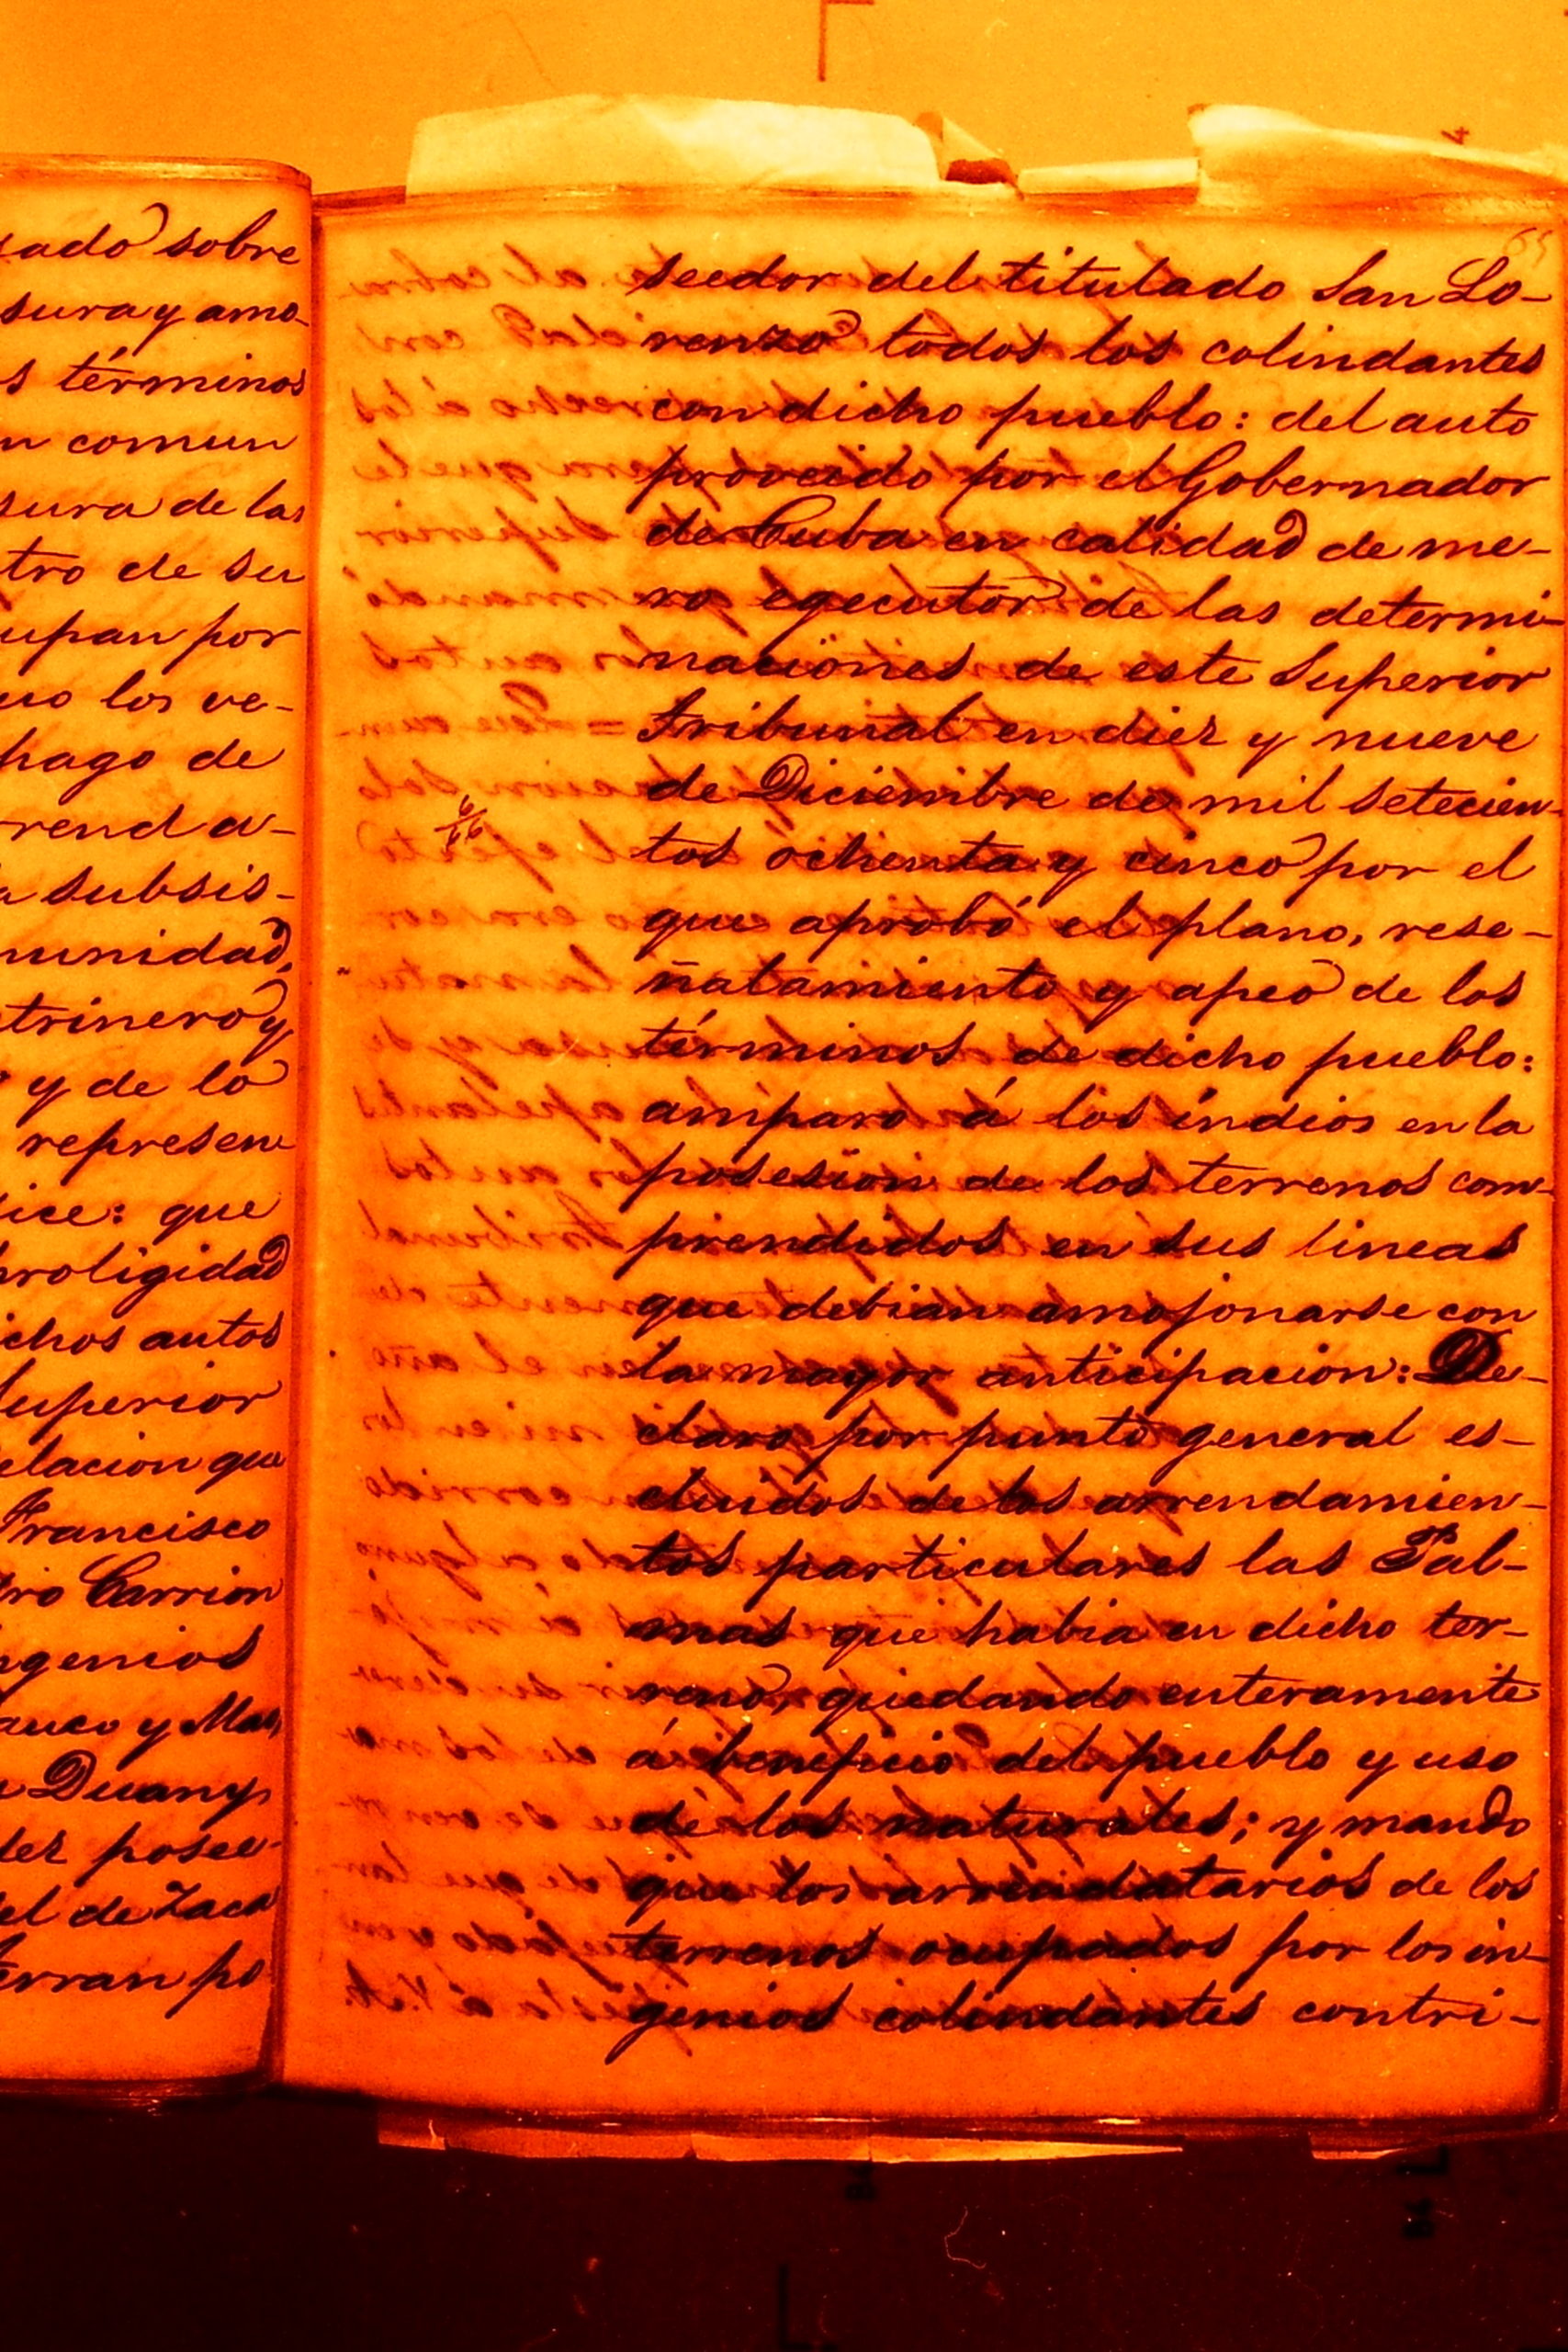 sado sobre
sura y amo-
s términos
n comun
sura de las
tro de su
upan por
uo los ve-
pago de
rrend a-
a subsis-
munidad,
trinero y
y de lo
represen
ice: que
proligidad
ichos autos
Superior
elacion que
Francisco
tro Carrion
ngenios
auco y Mas,
n Duany,
der posee-
el de Zaca
erran po
65
seedor del titulado San Lo-
renzo todos los colindantes
con dicho pueblo: del auto
proveido por el Gobernador
de Cuba en calidad de me-
ro egecutor de las determi-
naciones de este Superior
tribunal en diez y nueve
de Diciembre de mil setecien-
tos ochenta y cinco por el
que aprobó el plano, rese-
ñalamiento y apeo de los
términos de dicho pueblo:
amparó á los indios en la
posesion de los terrenos com-
prendidos en sus lineas
que debian amojonarse con
la mayor anticipacion: De-
claro por punto general es-
cluidos de los arrendamien-
tos particulares las Pal-
mas que habia en dicho ter-
reno, quedando enteramente
á beneficio del pueblo y uso
de los naturales; y mando
que los arrendatarios de los
terrenos ocupados por los in-
genios colindantes contri-